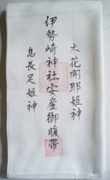 木花開耶姫神
伊勢崎神社安産御腹帯
息長足姫神